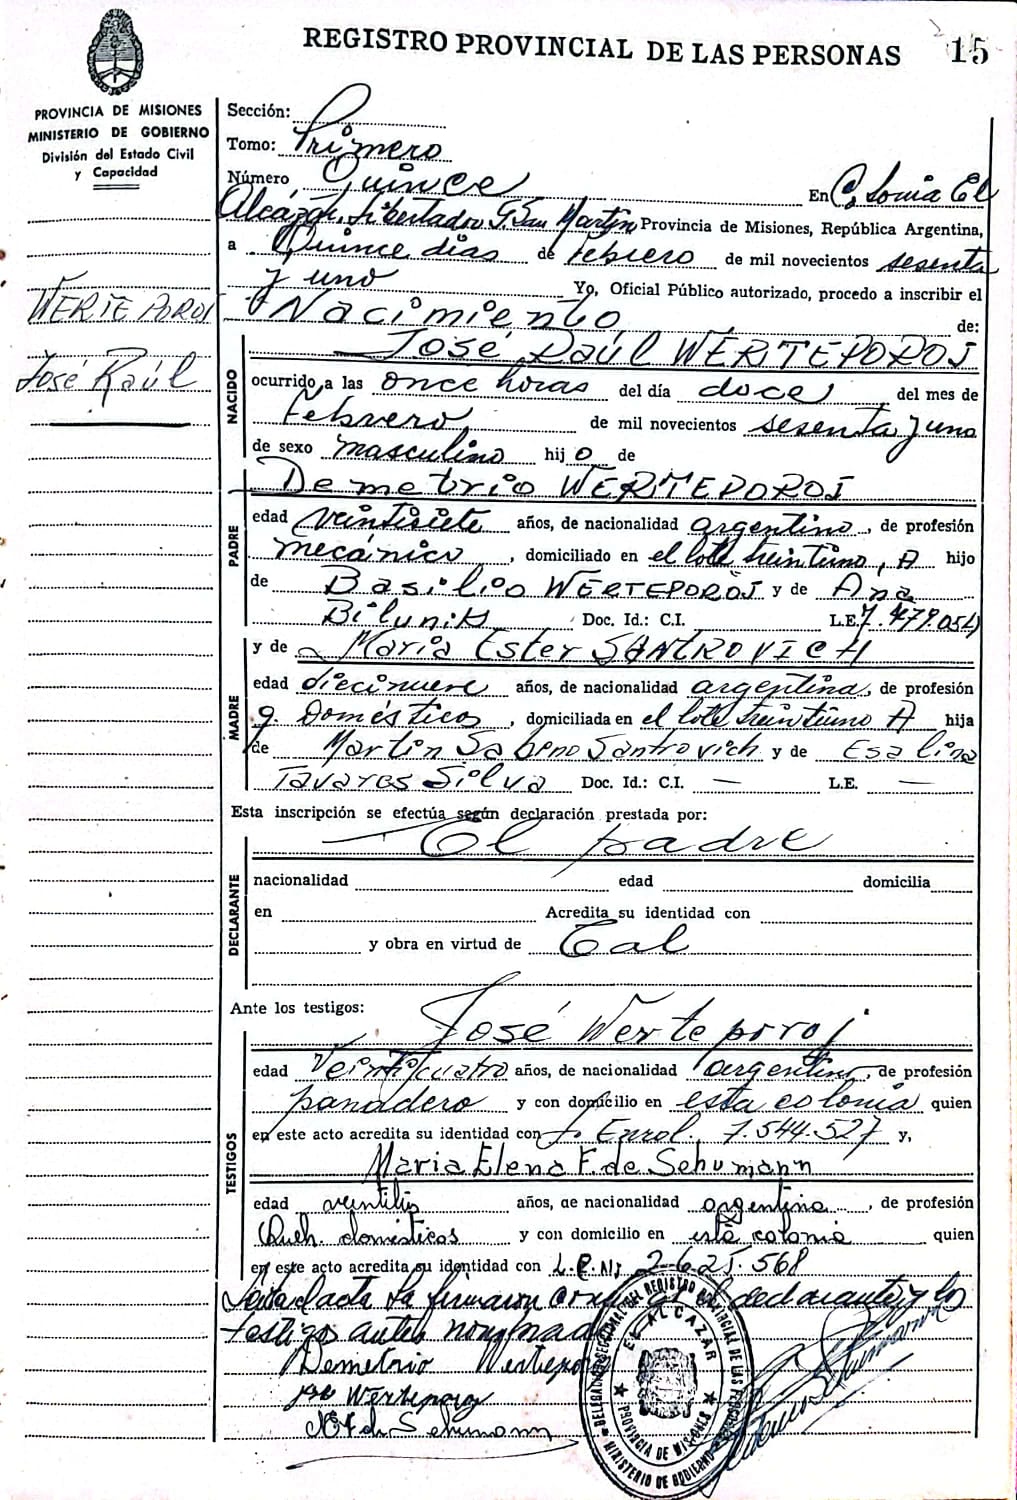 REGISTRO PROVINCIAL DE LAS PERSONAS 15
PROVINCIA DE MISIONES
MINISTERIO DE GOBIERNO
División del Estado Civil
y Capacidad
WERTEPOROJ
José Raúl
Sección:
Tomo: Primero
Número Quince En Colonia El
Alcázar, Libertador G. San Martín Provincia de Misiones, República Argentina,
a Quince días de Febrero de mil novecientos sesenta
y uno Yo, Oficial Público autorizado, procedo a inscribir el
Nacimiento de:
NACIDO
José Raúl WERTEPOROJ
ocurrido a las once horas del día doce del mes de
Febrero de mil novecientos sesenta y uno
de sexo masculino hijo de
PADRE
Demetrio WERTEPOROJ
edad veintisiete años, de nacionalidad argentino, de profesión
mecánico, domiciliado en el lote treintiuno, A hijo
de Basilio WERTEPOROJ y de Ana
Bilunik Doc. Id.: C.I. L.E. 7.479.054
MADRE
y de María Ester SANTROVICH
edad diecinueve años, de nacionalidad argentina, de profesión
q. Domésticos, domiciliada en el lote treintiuno A hija
de Martín Sabeno Santrovich y de Esalina
Tavares Silva Doc. Id.: C.I. — L.E. —
Esta inscripción se efectúa según declaración prestada por:
DECLARANTE
El padre
nacionalidad edad domicilia
en Acredita su identidad con
y obra en virtud de Tal
Ante los testigos:
TESTIGOS
José Werteporoj
edad Veinticuatro años, de nacionalidad argentino, de profesión
panadero y con domicilio en esta colonia quien
en este acto acredita su identidad con L. Enrol. 7.544.527 y,
Maria Elena F. de Schumann
edad años, de nacionalidad argentina, de profesión
Queh. domésticos y con domicilio en esta colonia quien
en este acto acredita su identidad con 2.625.568
Leida el acta la firmaron el declarante y los
testigos antes
Demetrio Werteporoj
José Werteporoj
M E F de Schumann
DELEGACION SECCIONAL DEL REGISTRO PROVINCIAL DE LAS PERSONAS
EL ALCAZAR
PROVINCIA DE MISIONES
MINISTERIO DE GOBIERNO